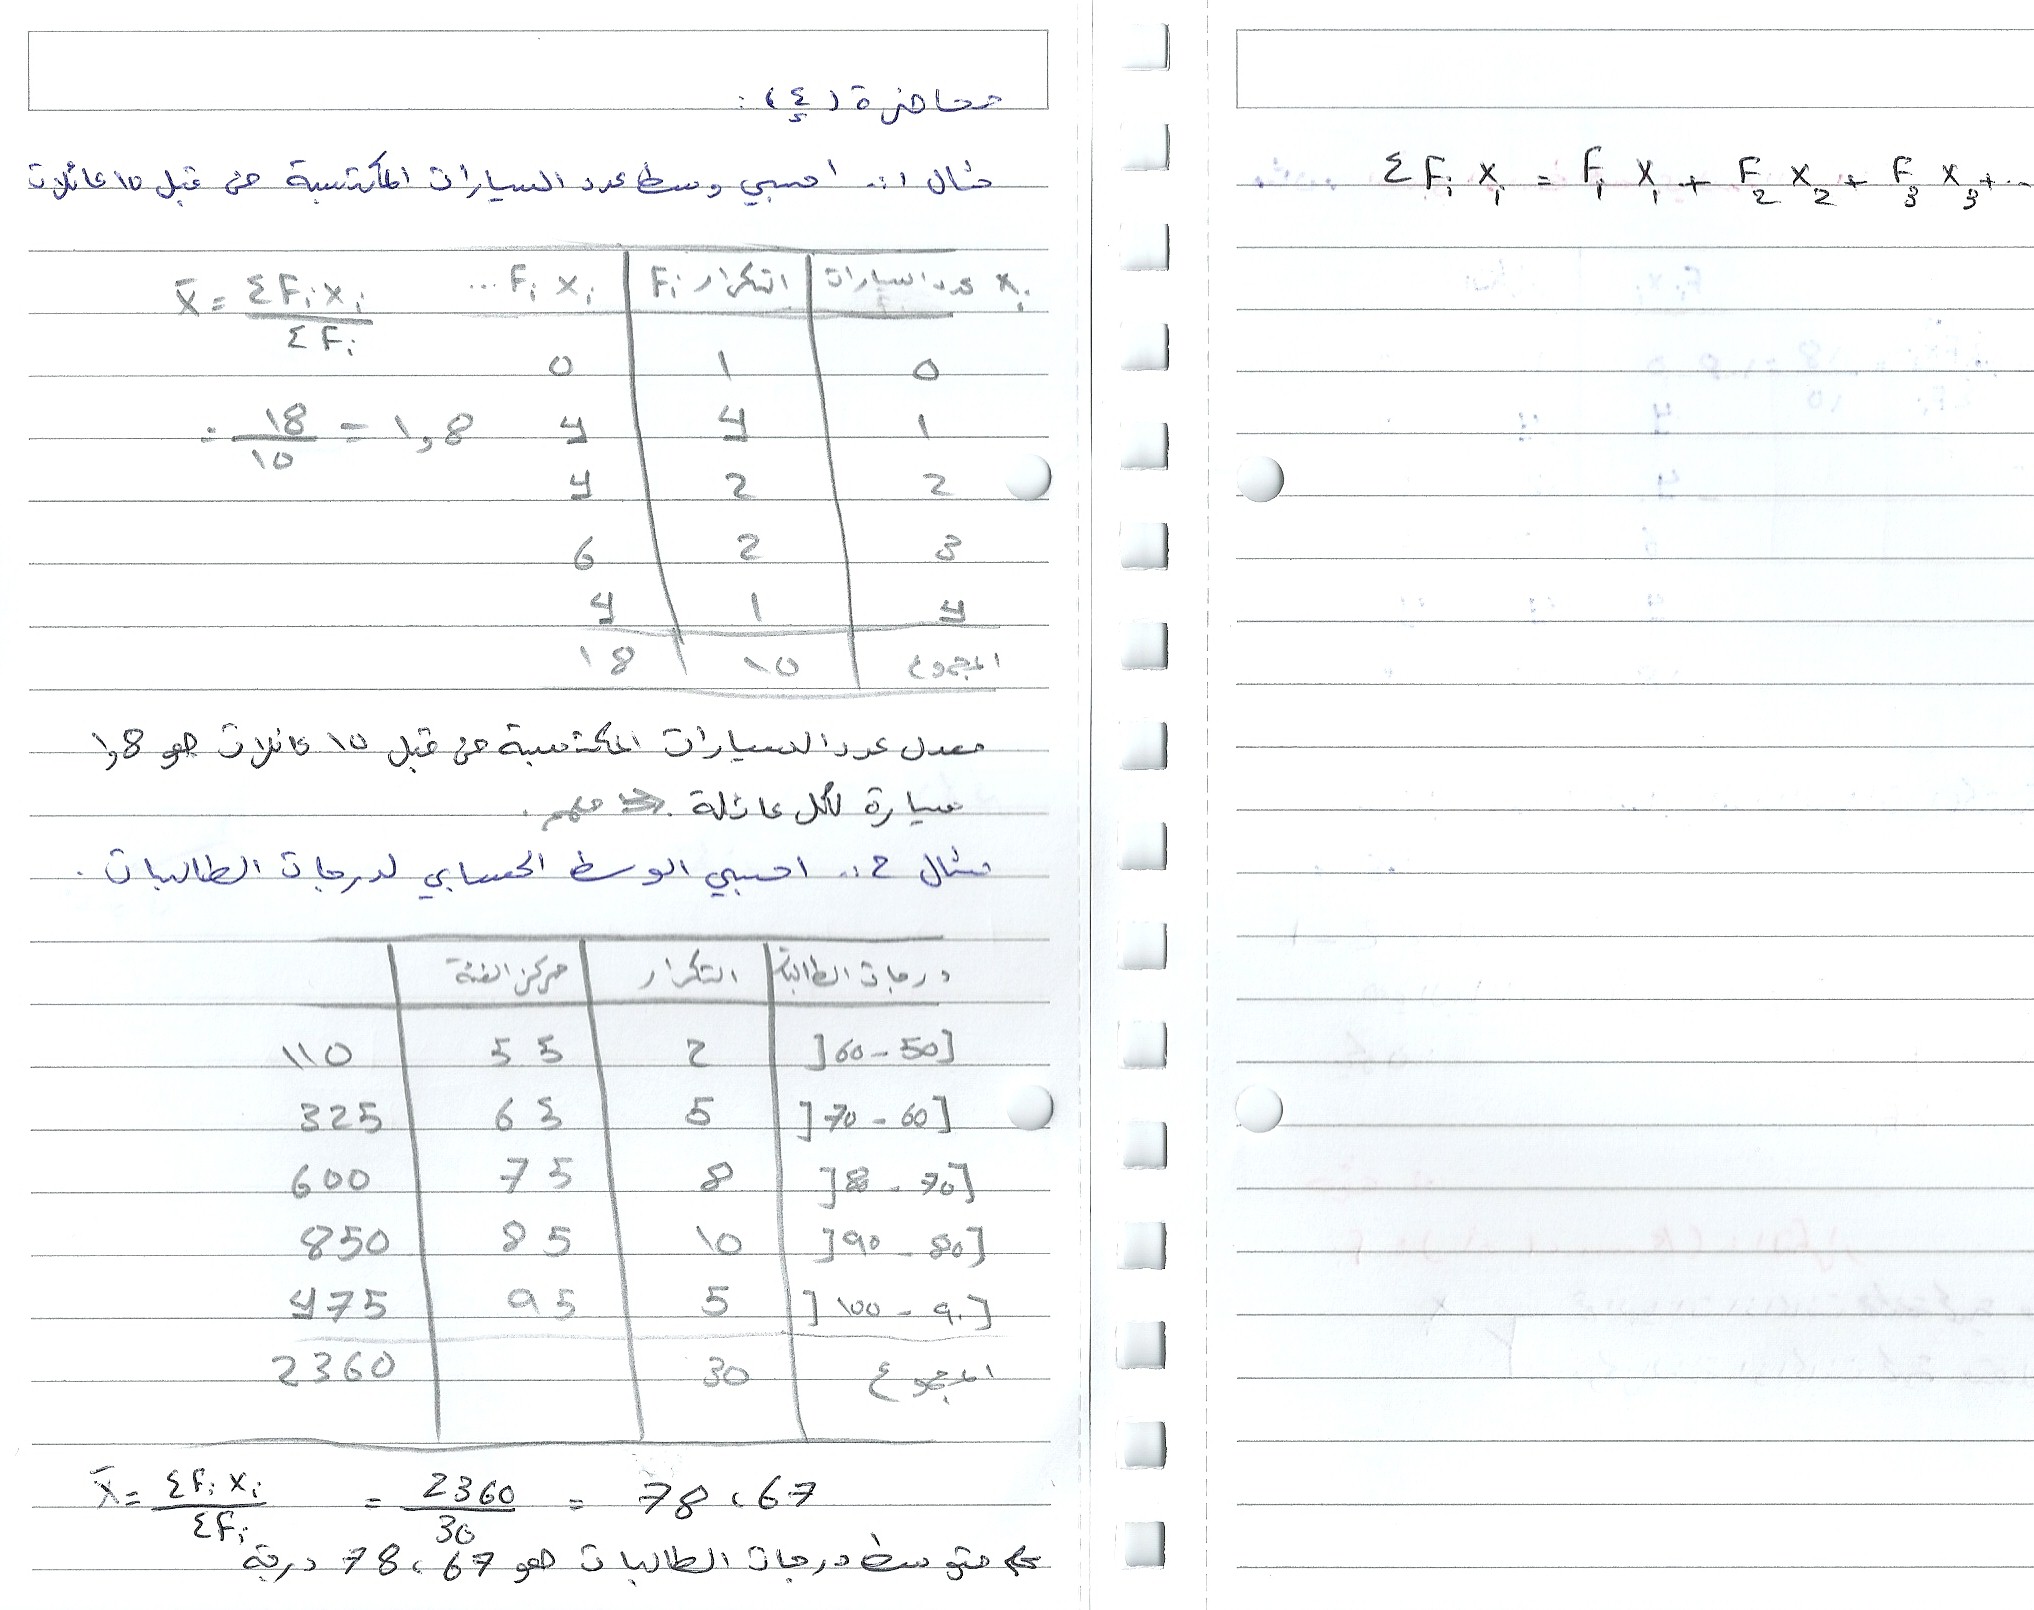 محاضرة (٤) :
مثال 1:. احسبي وسط عدد السيارات المكتسبة من قبل 10 عائلات
xi عدد السيارات | التكرار Fi | Fi xi ... X̄ = ΣFi xi / ΣFi
0 | 1 | 0
1 | 4 | 4 = 18/10 = 1,8
2 | 2 | 4
3 | 2 | 6
4 | 1 | 4
المجموع | 10 | 18
معدل عدد السيارات المكتسبة من قبل 10 عائلات هو 1,8
سيارة لكل عائلة . => مهم .
مثال 2:. احسبي الوسط الحسابي لدرجات الطالبات .
درجات الطالبات | التكرار | مركز الفئة
[50 - 60[ | 2 | 55 | 110
[60 - 70[ | 5 | 65 | 325
[70 - 8[ | 8 | 75 | 600
[80 - 90[ | 10 | 85 | 850
[90 - 100[ | 5 | 95 | 475
المجموع | 30 | 2360
X̄ = ΣFi xi / ΣFi = 2360/30 = 78،67
=> متوسط درجات الطالبات هو 78،67 درجة
ΣFi xi = F1 x1 + F2 x2 + F3 x3 + ...